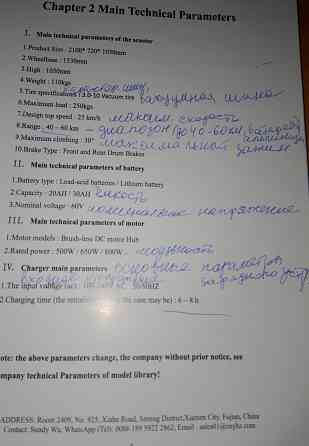 Chapter 2 Main Technical Parameters
I. Main technical parameters of the scooter
1.Product Size : 2100* 720* 1050mm
2.Wheelbase : 1530mm
3.High : 1050mm
4.Weight : 110kgs
5.Tire specifications 3.0-10 Vacuum tire вакуумная шина
6.Maximum load : 250kgs
7.Design top speed : 25 km/h максим скорость
8.Range : 40 – 60 km – диапозон до 40-60км
9.Maximum climbing : 30° максимальный
10.Brake Type : Front and Rear Drum Brakes
II. Main technical parameters of battery
1.Battery type : Lead-acid batteries / Lithium battery
2.Capacity : 20AH / 30AH ёмкость
3.Nominal voltage : 60V номинальное напряжение
III. Main technical parameters of motor
1.Motor models : Brush-less DC motor Hub
2.Rated power : 500W / 650W / 800W .. мощность
IV. Charger main parameters основные параметры
1.The input voltage
2.Charging time (the case may be) : 6 – 8 h
ote: the above parameters change, the company without prior notice, see
mpany technical Parameters of model library!
ADDRESS: Room 2409, No. 925, Xiahe Road, Siming District,Xiamen City, Fujian, China
Contact: Sandy Wu, WhatsApp (Tel): 0086 189 5922 2862, Email :